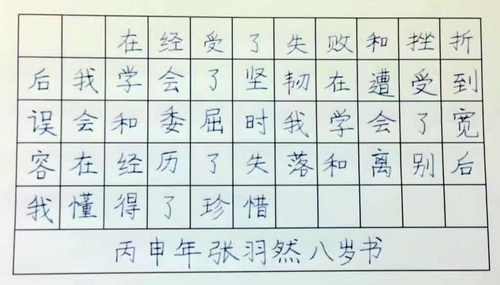 在经受了失败和挫折
后我学会了坚韧在遭受到
误会和委屈时我学会了宽
容在经历了失落和离别后
我懂得了珍惜
丙申年张羽然八岁书